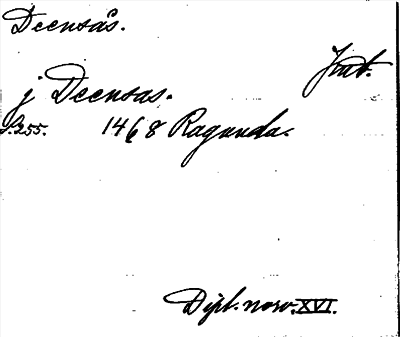 Deensås.
Jmt.
j Deensas.
s. 255. 1468 Ragunda.
Dipl. norv. XVI.